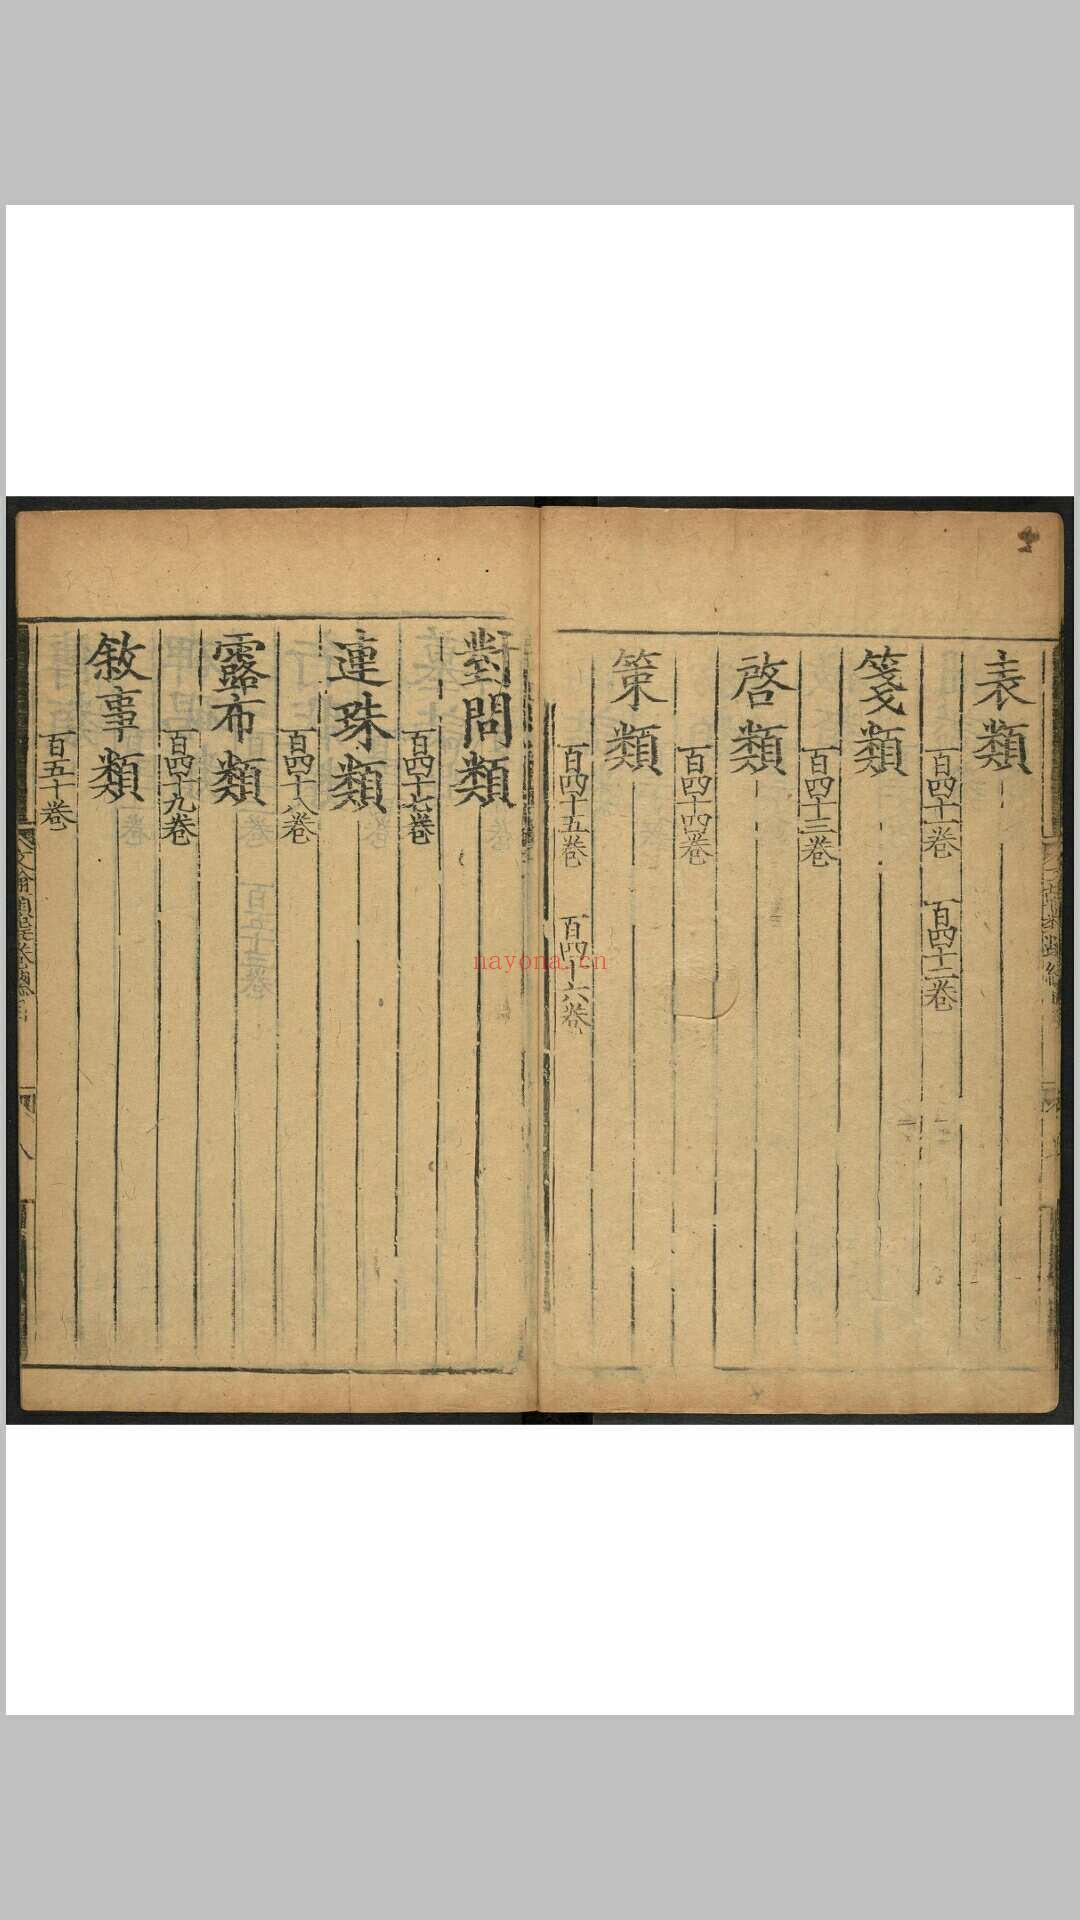 表類
百四十一卷 百四十二卷
箋類
百四十三卷
啓類
百四十四卷
策類
百四十五卷 百四十六卷
對問類
百四十七卷
連珠類
百四十八卷
露布類
百四十九卷
敘事類
百五十卷
八
nayona.cn